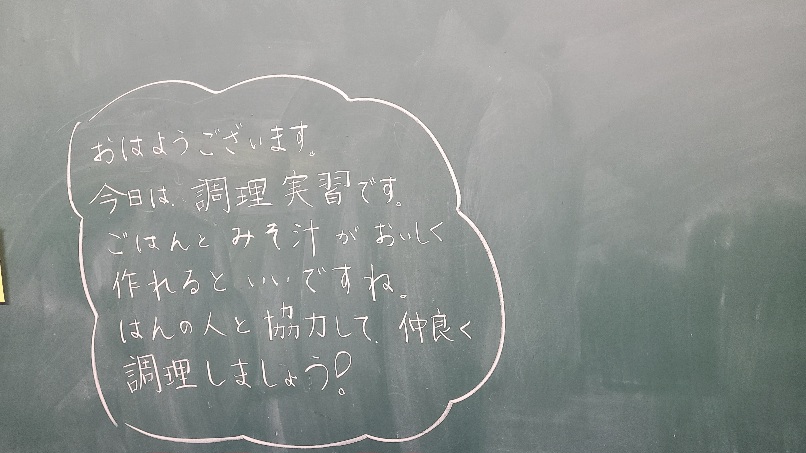 おはようございます。
今日は、調理実習です。
ごはんと みそ汁 が おいしく
作れるといいですね。
はんの人と協力して、仲良く
調理しましょう!